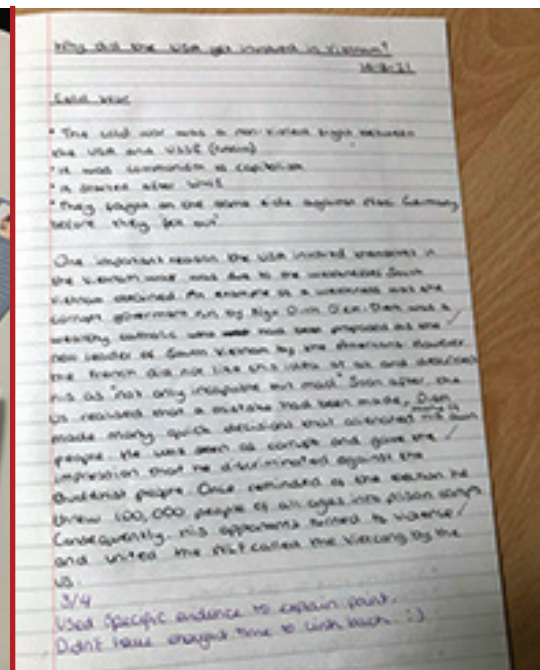 Why did the USA get involved in Vietnam?
Cold War
* The cold war was a non-violent fight between
the USA and USSR
* It was communism vs capitalism
* It started after WWII
* They fought on the same side against Nazi Germany
before they fell out
One important reason the USA involved themselves in
the Vietnam war was due to the weaknesses South
Vietnam An example of a weakness was the
corrupt goverment run by Ngo Dinh Diem. Diem was a
wealthy catholic who had been proposed as the
new leader of South Vietnam by the Americans. However
the French did not like this idea at all and described
his as "not only incapable but mad" Soon after, the
US realised that a mistake had been made, Diem
made many quick decisions that alienated his own
people. He was seen as corrupt and gave the
impression that he discriminated against the
Buddhist Once reminded of the election he
threw 100,000 people of all ages into prison camps
Consequently, his opponents turned to violence
and united the NLF called the Vietcong by the
US.
3/4
Used specific evidence to explain point.
Didn't have enough time to link back. :)